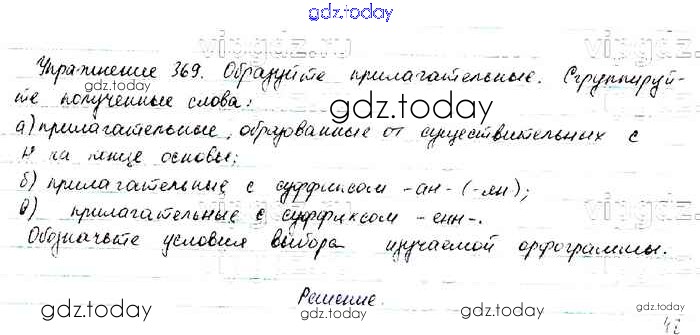 gdz.today
vipgdz.ru vipgdz.ru
Упражнение 369. Образуйте прилагательные. Сгруппируй-
те полученные слова:
gdz.today
а) прилагательные, образованные от существительных с
н на конце основы;
б) прилагательные с суффиксом -ан- (-ян);
в) прилагательные с суффиксом -енн-.
vipgdz.ru vipgdz.ru
Обозначьте условия выбора изучаемой орфограммы.
gdz.today gdz.today gdz.today
Решение.